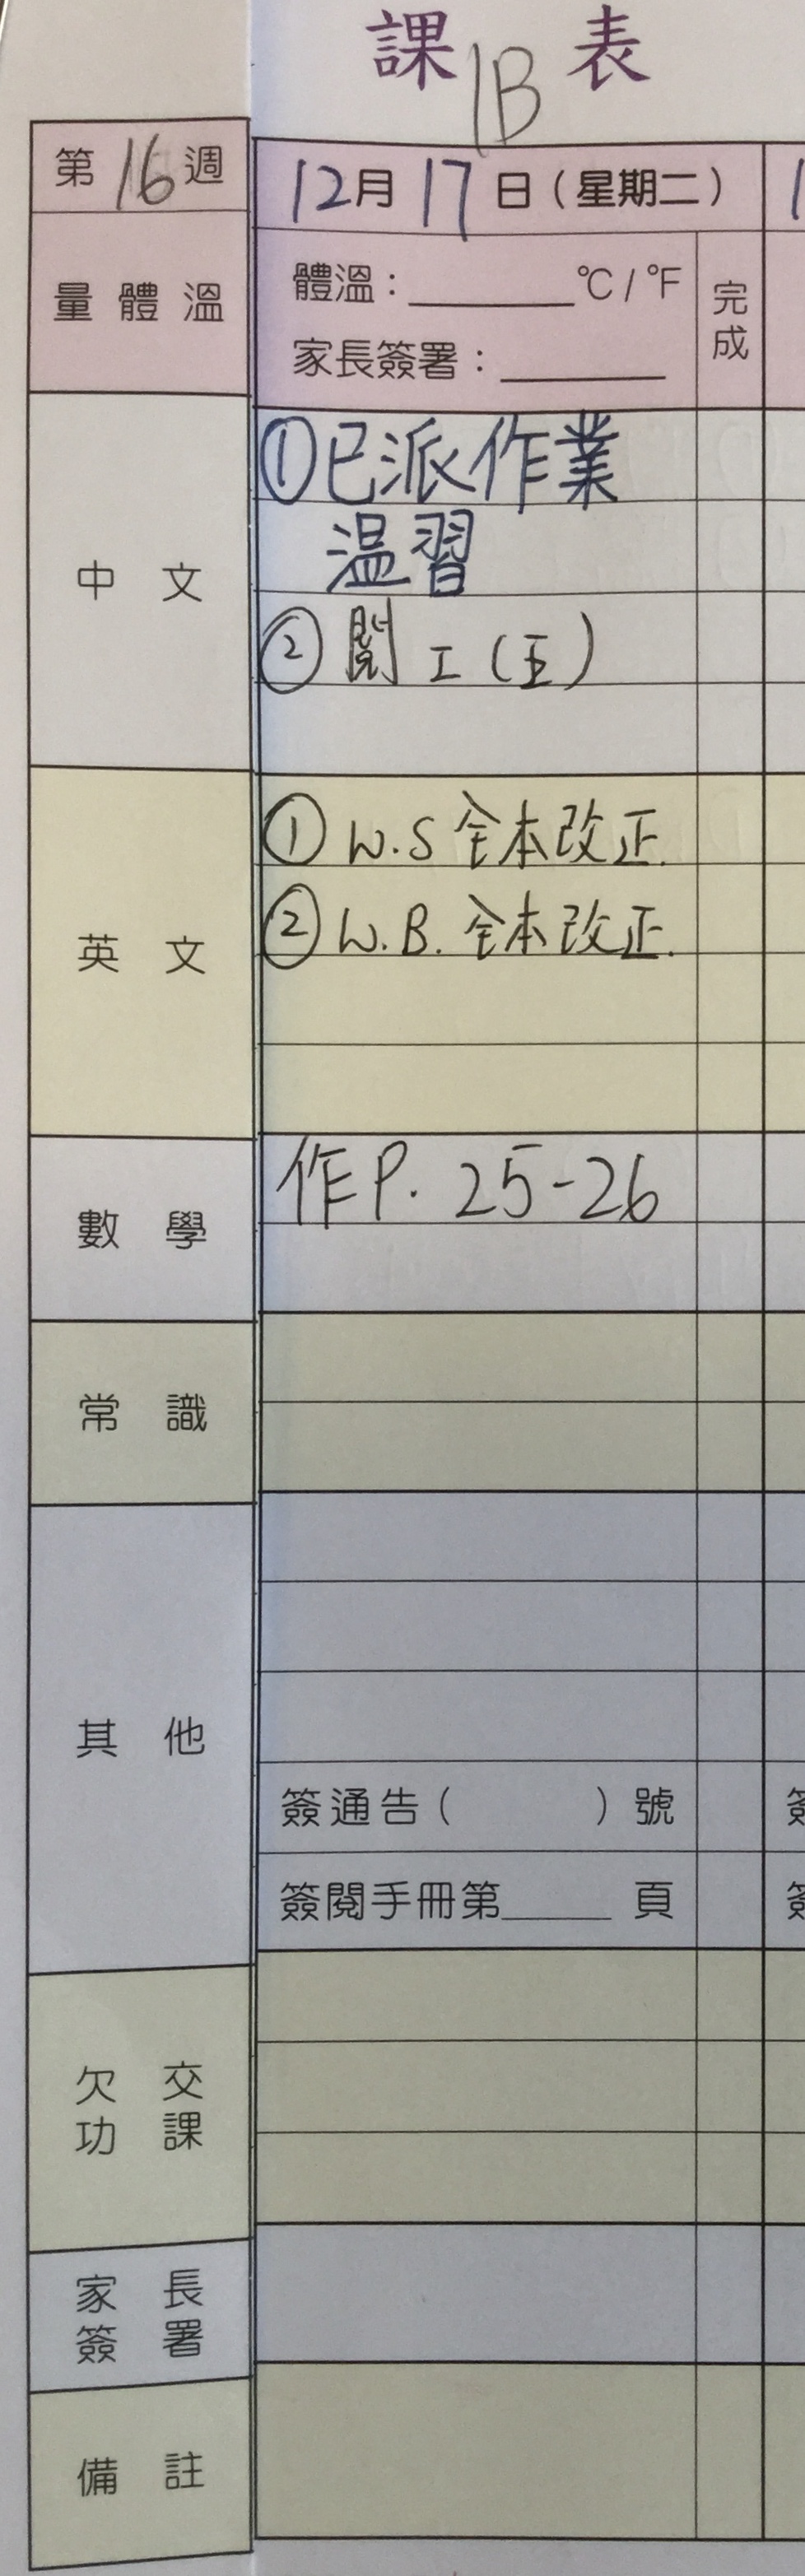 課 1B 表
第16週
12月17日（星期二）
量體溫
體溫：______℃/℉
家長簽署：______
完成
中文
①已派作業
温習
②閱工(五)
英文
① W.S 全本改正.
② W.B. 全本改正.
數學
作P. 25-26
常識
其他
簽通告（ ）號
簽閱手冊第____頁
欠交功課
家長簽署
備註